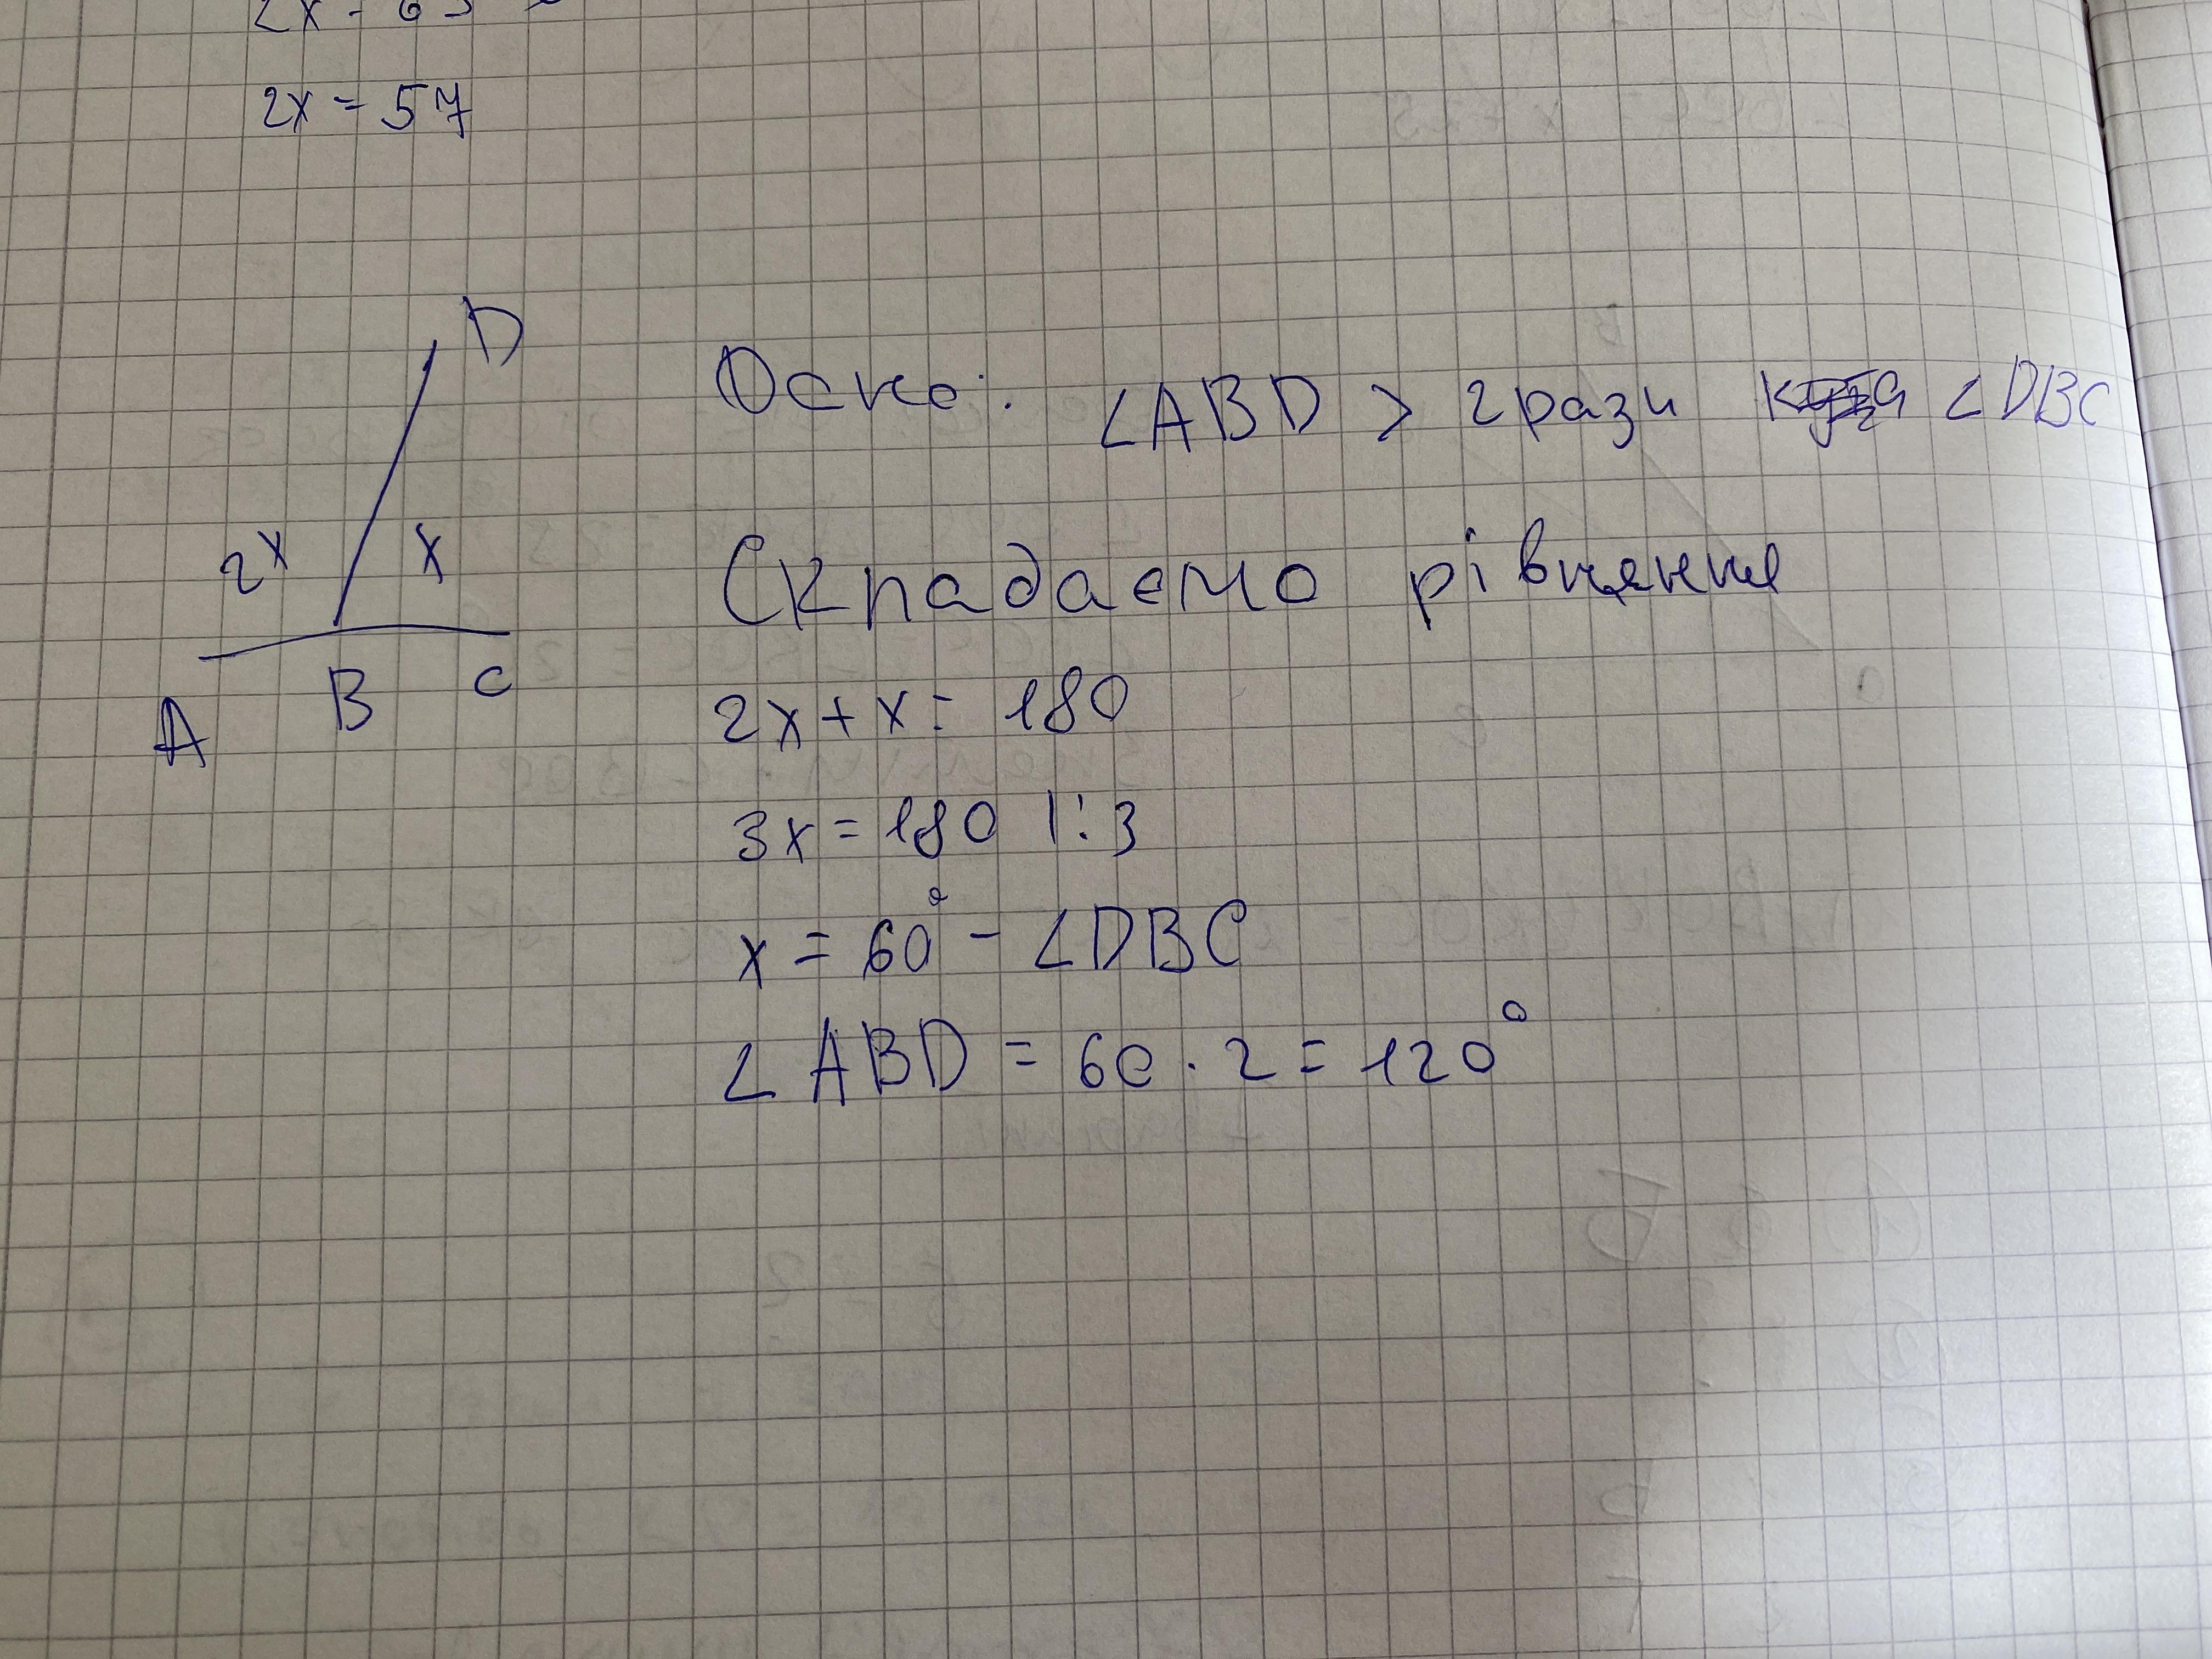 2x = 57
D
2x x
A B C
Дано: ∠ABD > 2 рази ∠DBC
Складаємо рівняння
2x + x = 180
3x = 180 |:3
x = 60° - ∠DBC
∠ABD = 60 · 2 = 120°